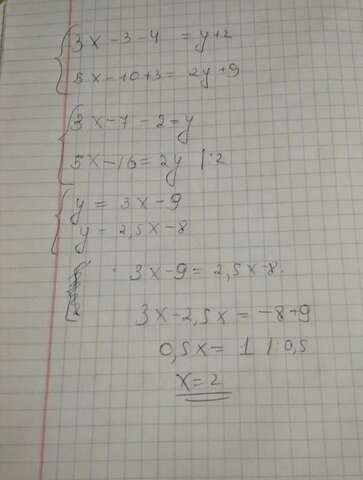 3x - 3 - 4 = y + 2
5x - 10 + 3 = 2y + 9
3x - 7 - 2 = y
5x - 16 = 2y | : 2
y = 3x - 9
y = 2,5x - 8
3x - 9 = 2,5x - 8
3x - 2,5x = -8 + 9
0,5x = 1 | 0,5
x = 2